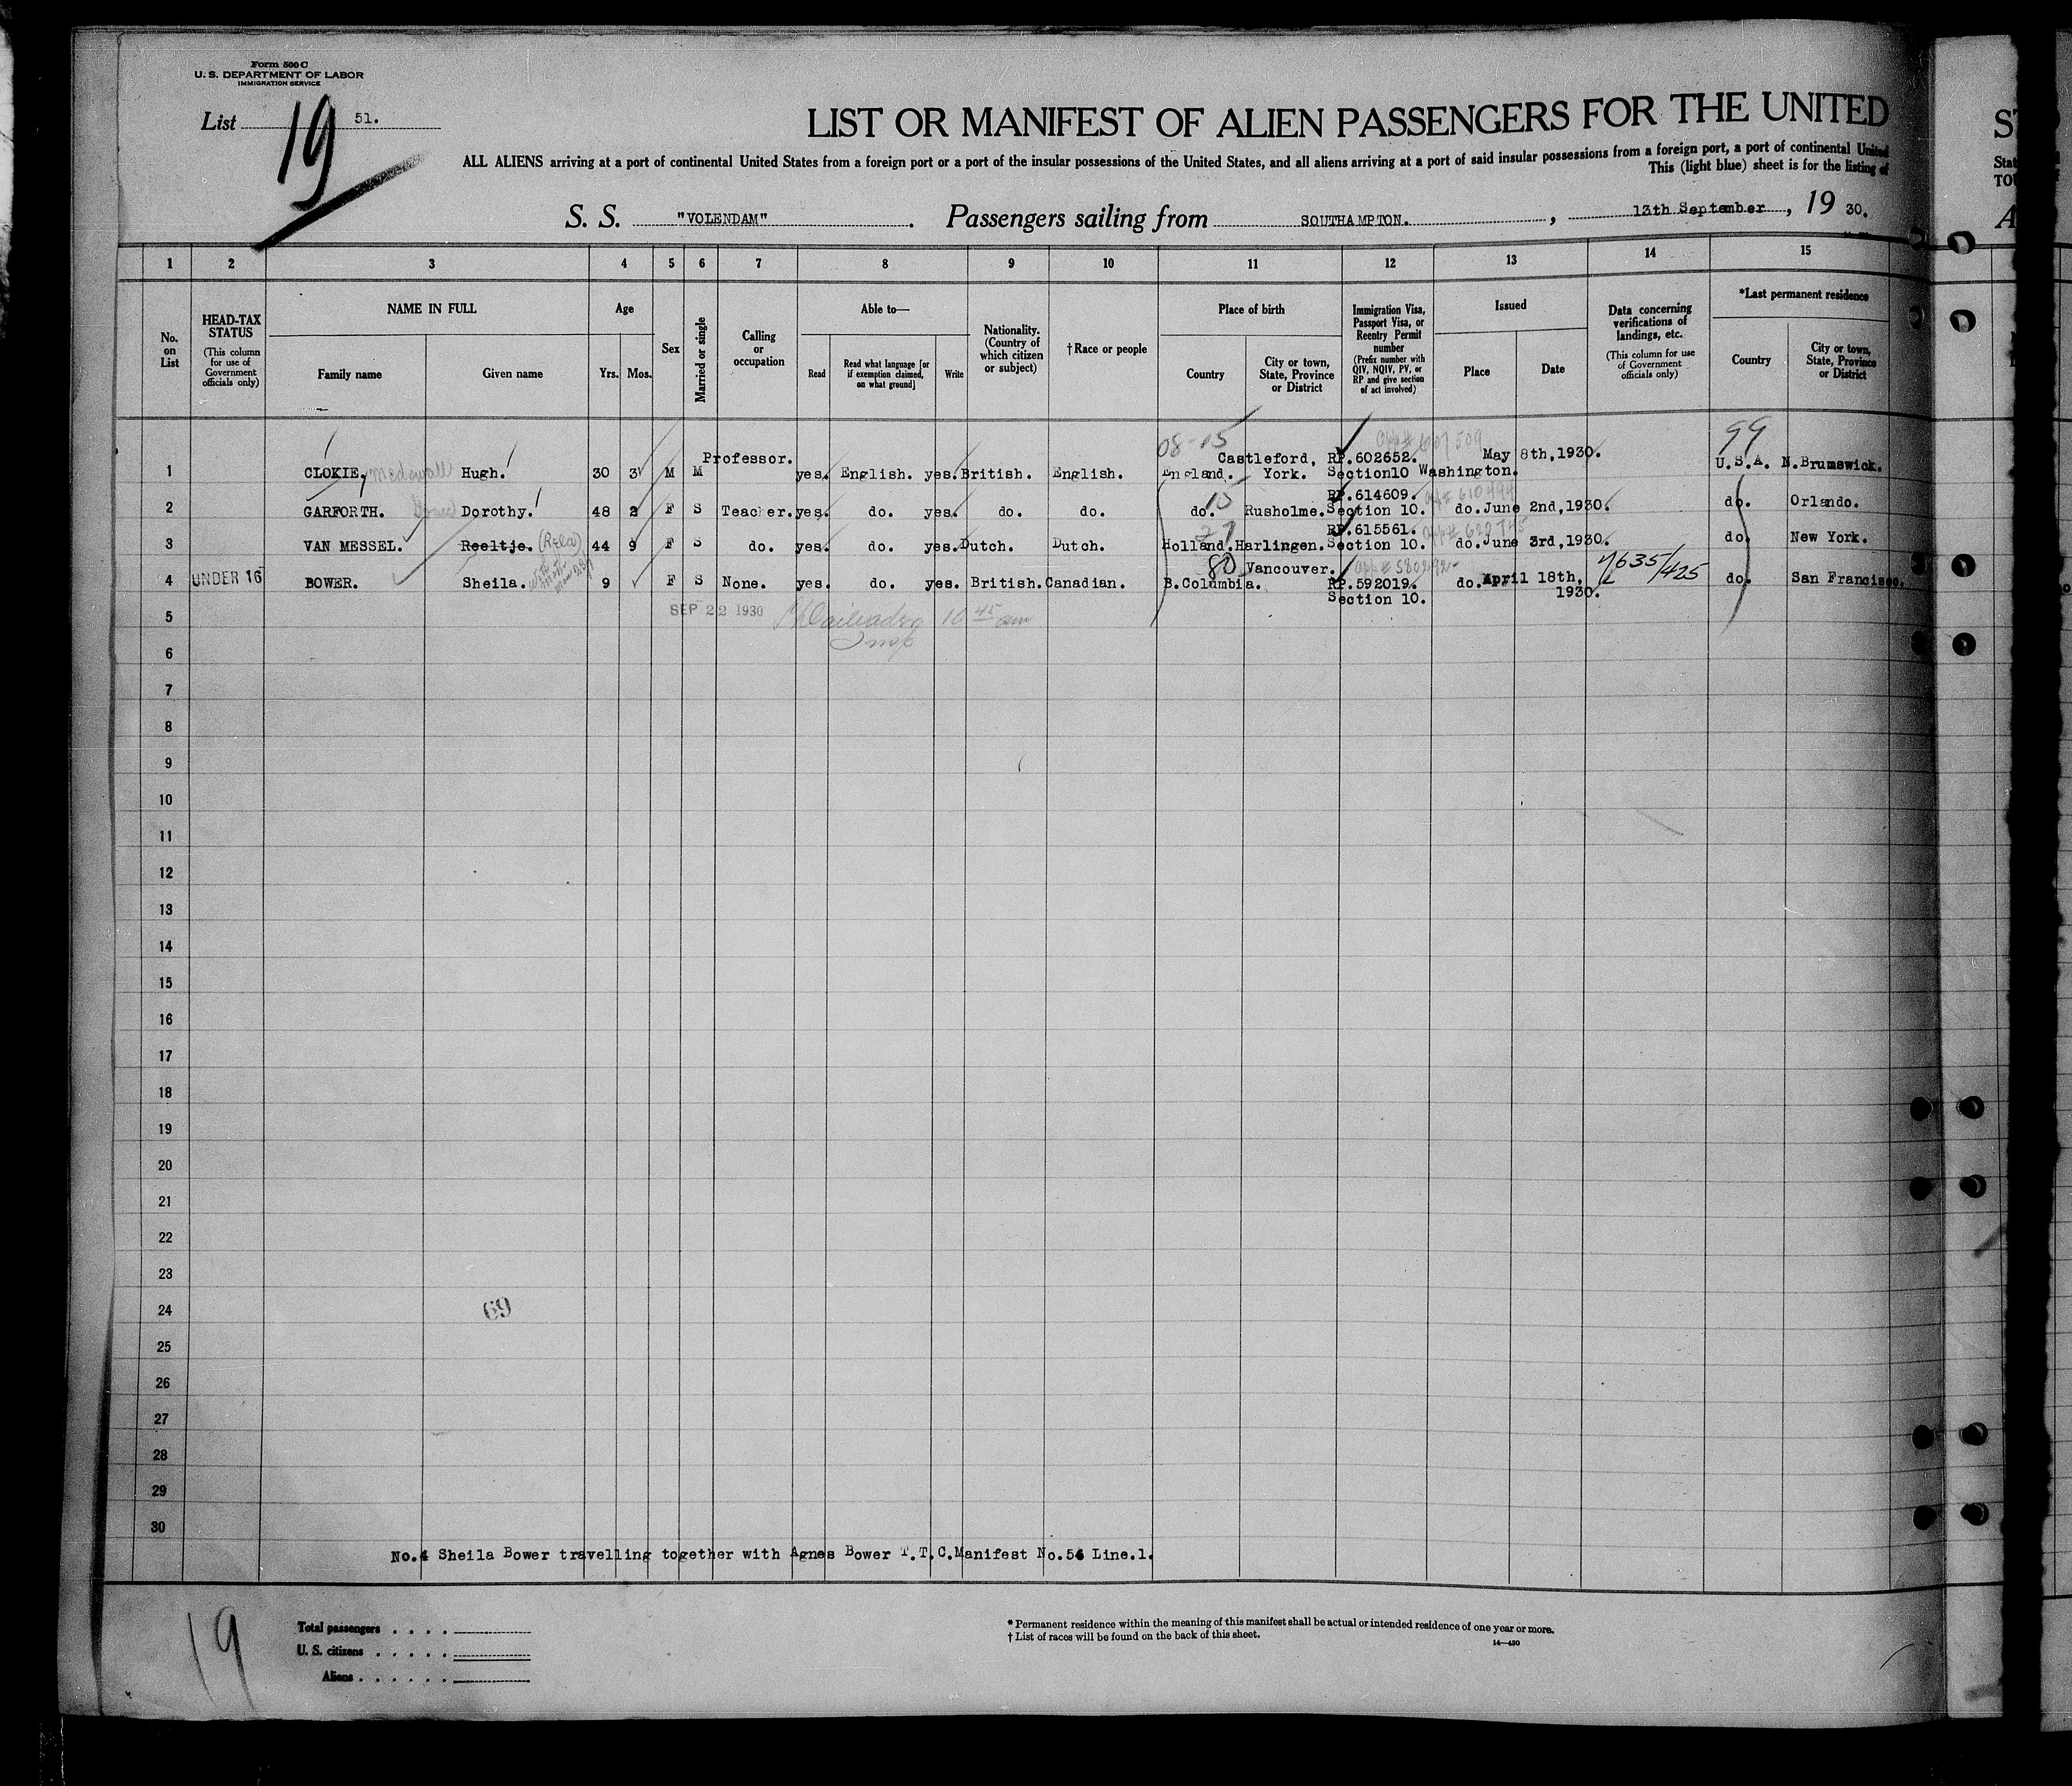 Form 500 C
U. S. DEPARTMENT OF LABOR
IMMIGRATION SERVICE
List 19 51.
LIST OR MANIFEST OF ALIEN PASSENGERS FOR THE UNITED
ALL ALIENS arriving at a port of continental United States from a foreign port or a port of the insular possessions of the United States, and all aliens arriving at a port of said insular possessions from a foreign port, a port of continental United
This (light blue) sheet is for the listing of
S. S. "VOLENDAM". Passengers sailing from SOUTHAMPTON. , 13th September , 19 30.
1 2 3 4 5 6 7 8 9 10 11 12 13 14 15
No. on List
HEAD-TAX STATUS
(This column for use of Government officials only)
NAME IN FULL
Family name Given name
Age
Yrs. Mos.
Sex
Married or single
Calling or occupation
Able to—
Read
Read what language [or if exemption claimed, on what ground]
Write
Nationality. (Country of which citizen or subject)
†Race or people
Place of birth
Country
City or town, State, Province or District
Immigration Visa, Passport Visa, or Reentry Permit number
(Prefix number with QIV, NQIV, PV, or RP and give section of act involved)
Issued
Place Date
Data concerning verifications of landings, etc.
(This column for use of Government officials only)
*Last permanent residence
Country
City or town, State, Province or District
08-15 99
Professor. Castleford, RP.602652. May 8th,1930.
1 CLOKIE, Hugh. 30 3 M M yes. English. yes. British. English. England. York. Section10 Washington. U.S.A. N.Brumswick.
15 RP.614609.
2 GARFORTH. Dorothy. 48 2 F S Teacher. yes. do. yes. do. do. do. Rusholme. Section 10. do. June 2nd,1930. do. Orlando.
27 RP.615561.
3 VAN MESSEL. Reeltje. (Rela) 44 9 F S do. yes. do. yes. Dutch. Dutch. Holland. Harlingen. Section 10. do. June 3rd,1930. do. New York.
80 Vancouver.
4 UNDER 16 BOWER. Sheila. 9 F S None. yes. do. yes. British. Canadian. B.Columbia. RP.592019. do. April 18th, 1930. do. San Francisco.
Section 10.
5 SEP 22 1930 10 45 am
6
7
8
9
10
11
12
13
14
15
16
17
18
19
20
21
22
23
24 69
25
26
27
28
29
30
No.4 Sheila Bower travelling together with Agnes Bower T.T.C.Manifest No.56 Line.1.
19
Total passengers . . . .
U. S. citizens . . . . .
Aliens . . . . . .
* Permanent residence within the meaning of this manifest shall be actual or intended residence of one year or more.
† List of races will be found on the back of this sheet.
14—430